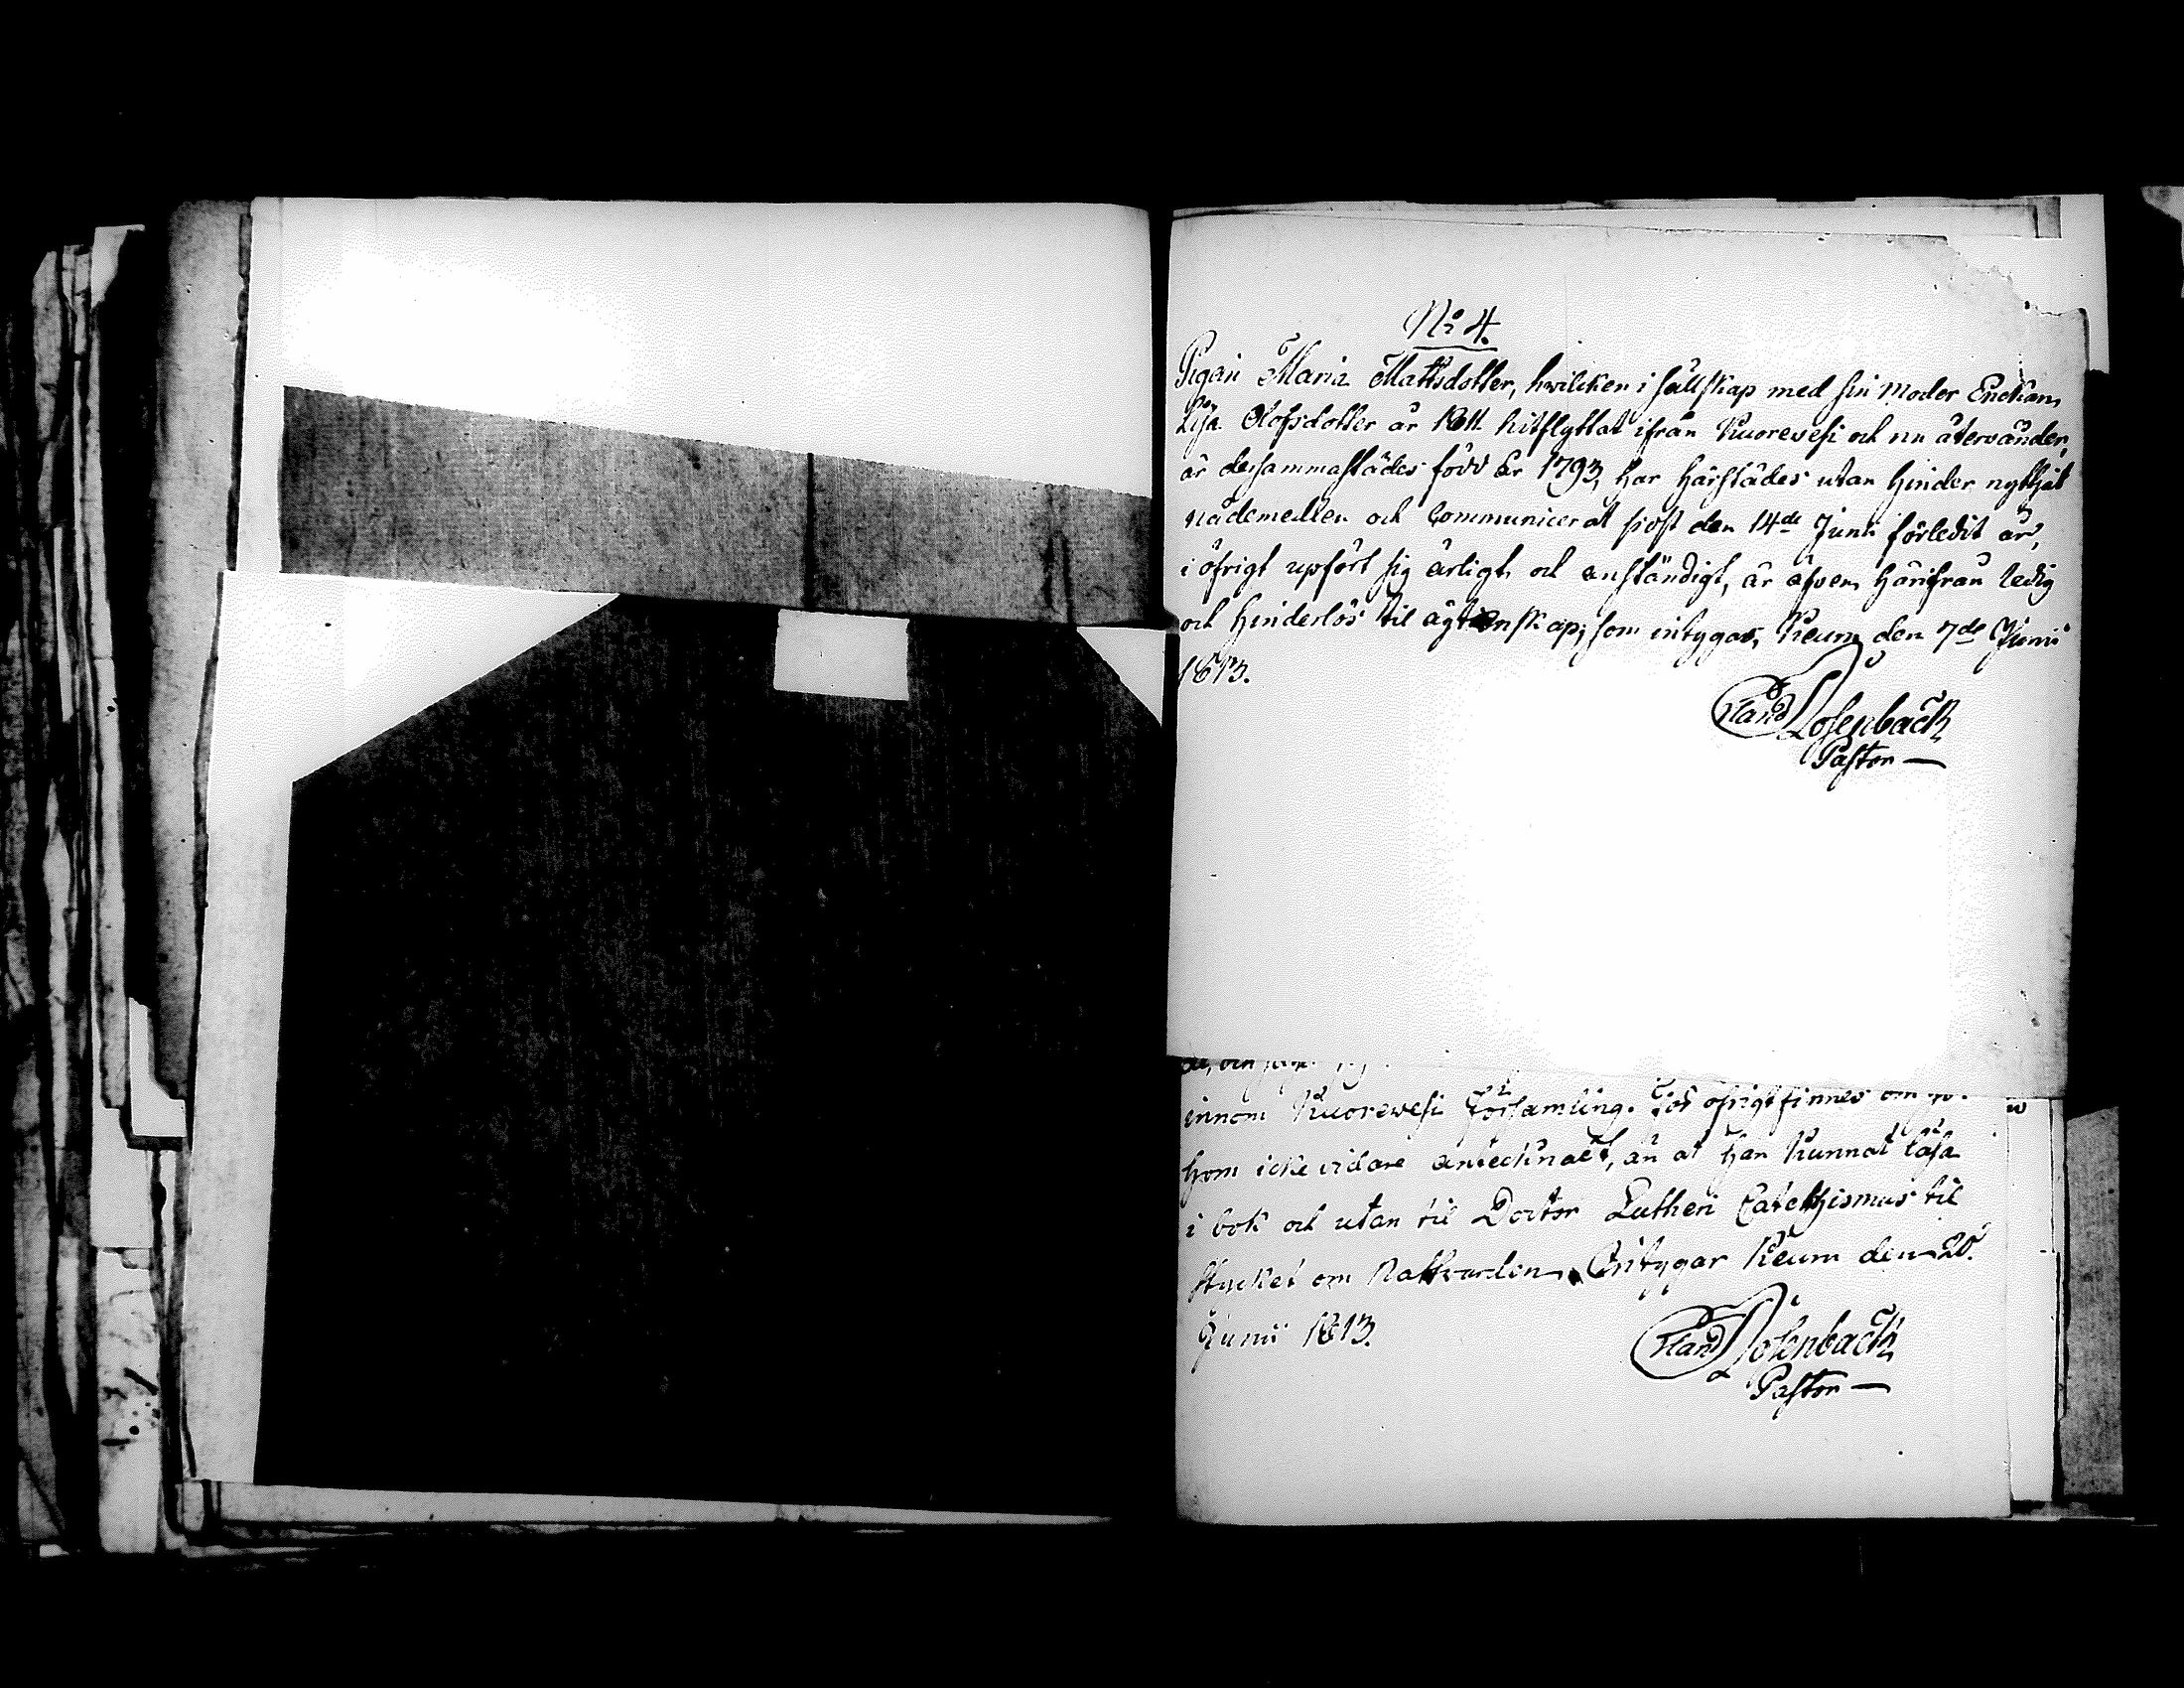 No 4.
Pigan Maria Mattsdotter, hwilcken i sällskap med sin Moder Enckan
Lisa Olofsdotter år 1811 hitflyttat ifrån Kuorevesi och nu återvänder,
är dersammastädes född År 1793, har härstädes utan hinder nyttjat
nådemedlen och Communicerat sist den 14de Junii förledit år,
i öfrigt upfört sig ärligt och anständigt, är äfven härifrån ledig
och hinderlös til ägtenskap; som intygas, Keuru den 7de Junii
1813.
Rosenback
Pastor
innom Kuorewesi Församling. För öfrigt finnes om
hom icke vidare antecknadt, än at han kunnat läsa
i bok och utan til Doctor Lutheri Catechismus til
stycket om Nattvarden. Intygar Keuru den 20.
Junii 1813.
Rosenback
Pastor